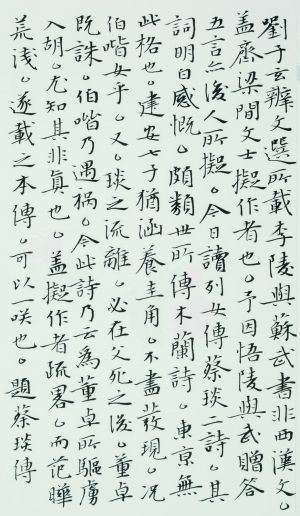 劉子玄辨文選所載李陵與蘇武書非西漢文。
蓋齊梁間文士擬作者也。予因悟陵與武贈答
五言亦後人所擬。今日讀列女傳蔡琰二詩。其
詞明白感慨。頗類世所傳木蘭詩。東京無
此格也。建安七子猶涵養圭角。不盡發現。況
伯喈女乎。又琰之流離。必在父死之後。董卓
既誅。伯喈乃遇禍。今此詩乃云為董卓所驅虜
入胡。尤知其非真也。蓋擬作者疏略。而范曄
荒淺。遂載之本傳。可以一咲也。題蔡琰傳